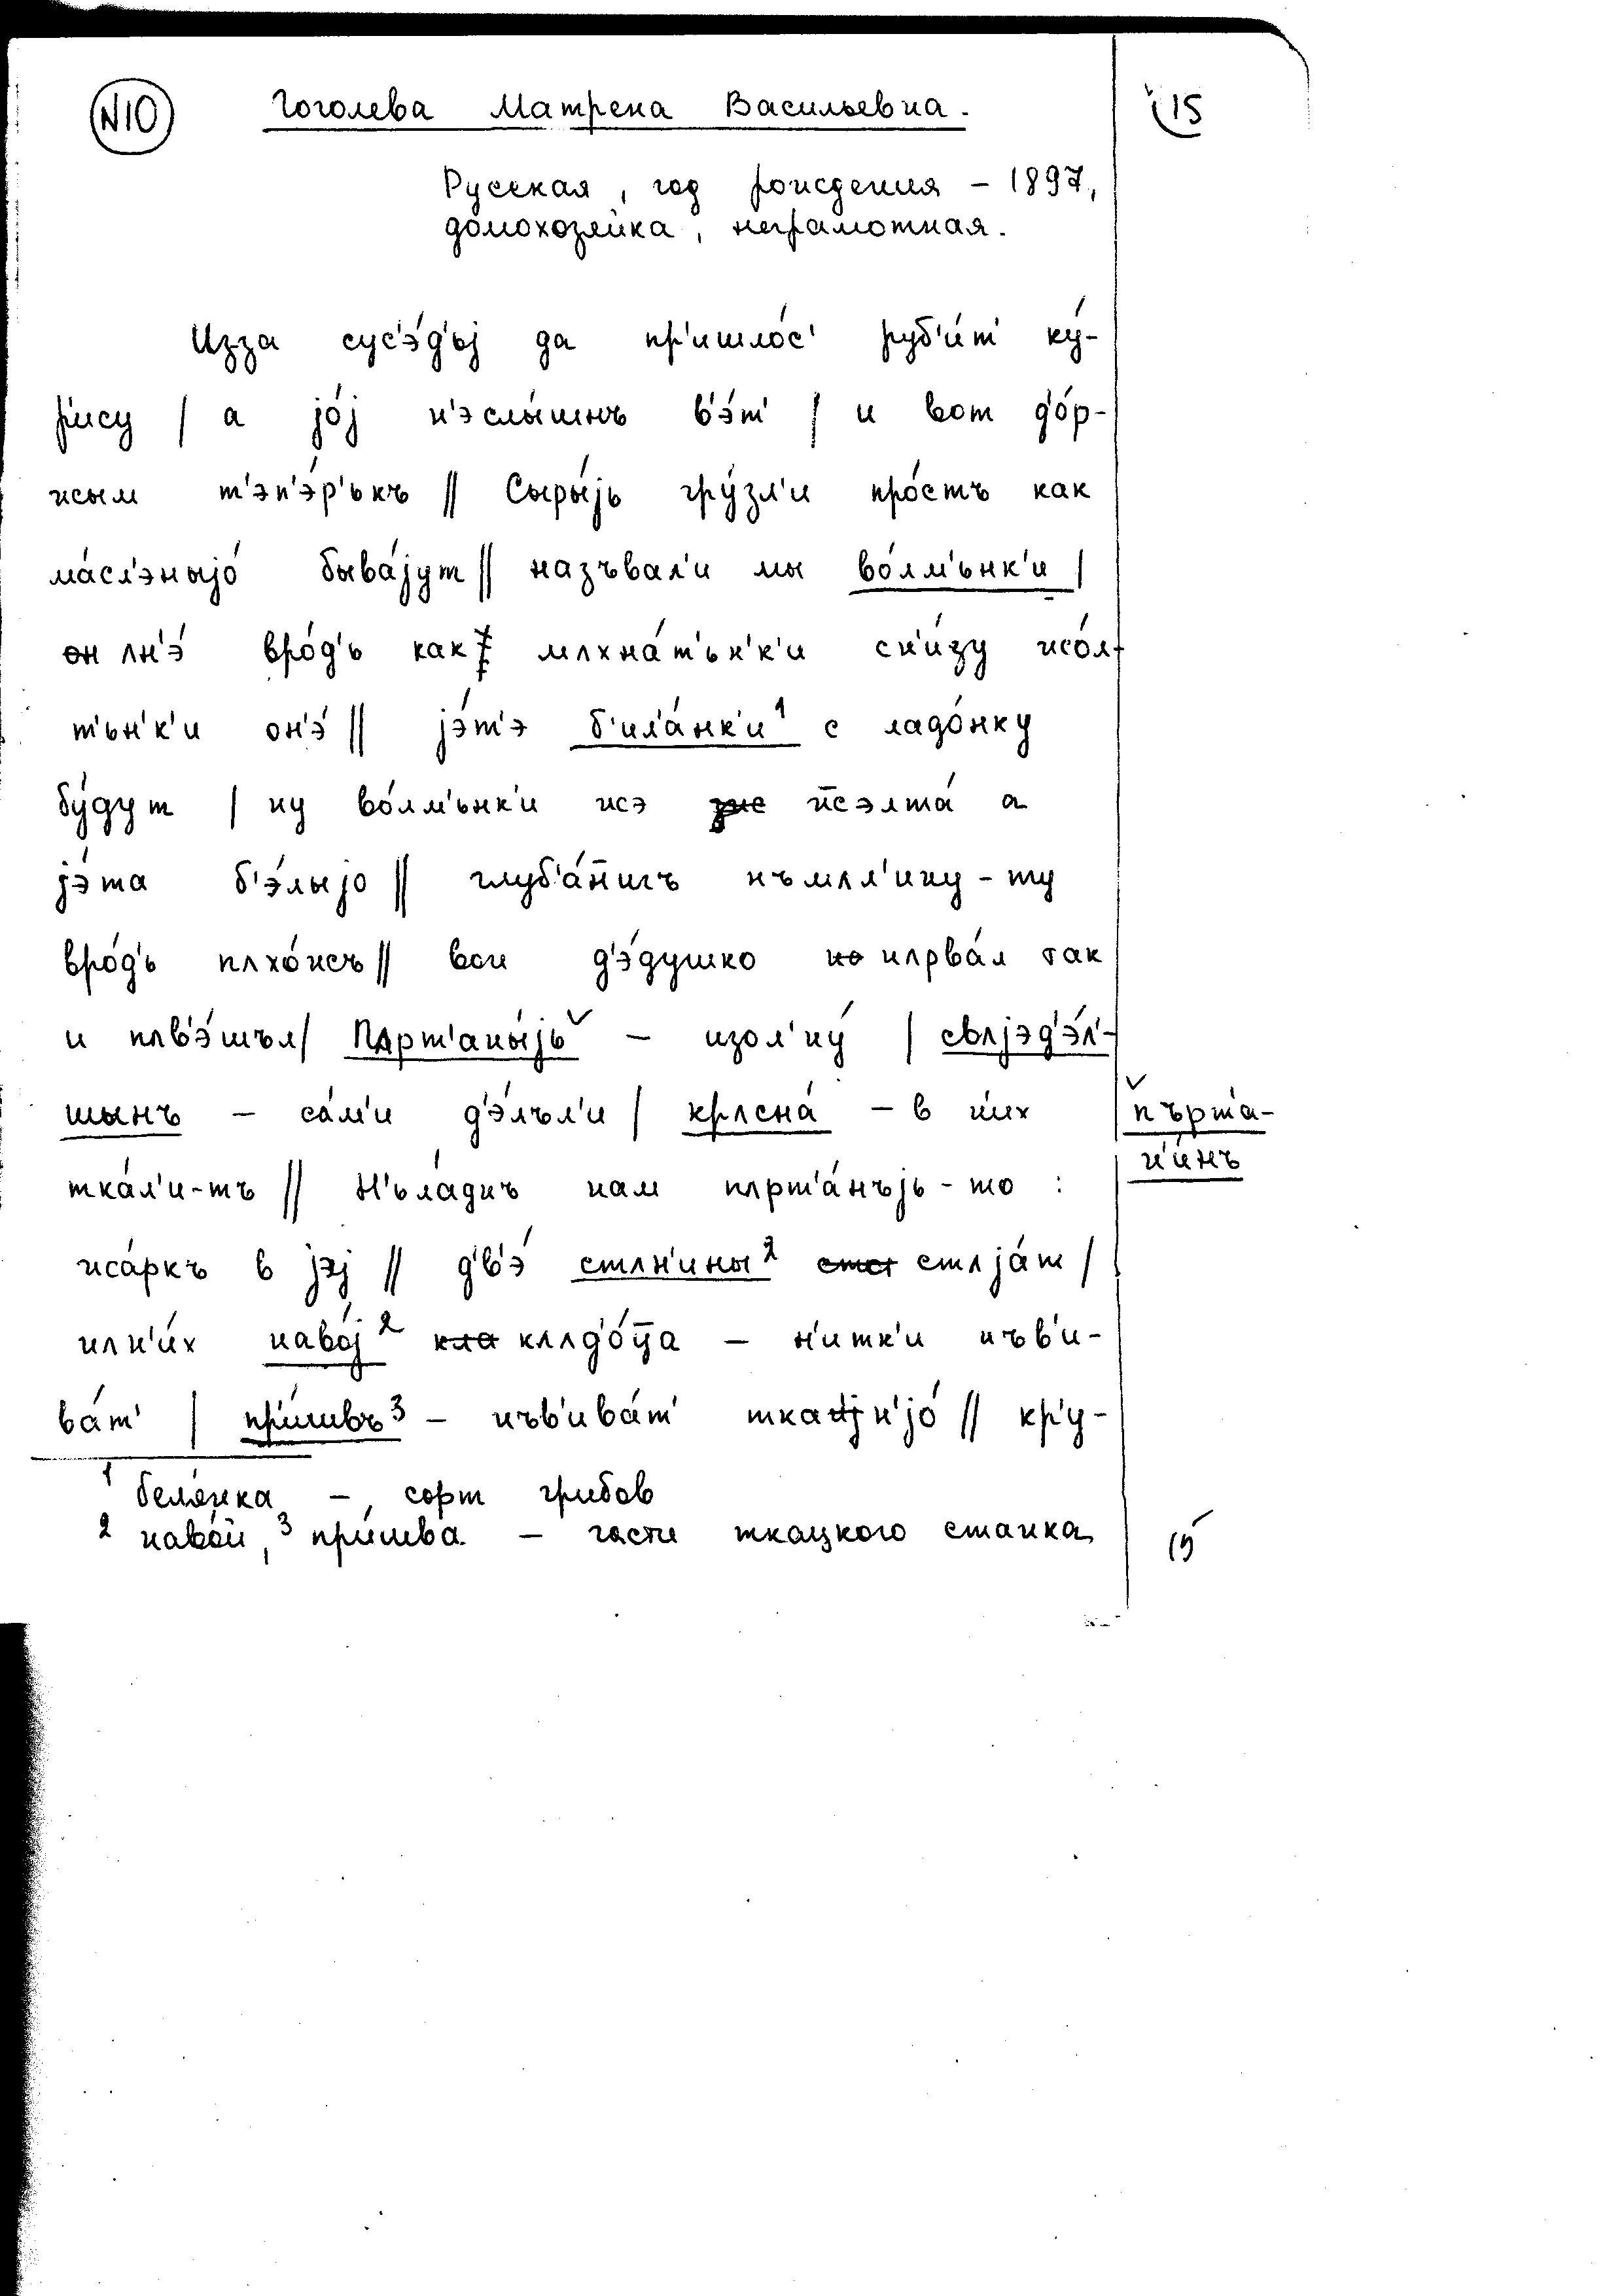 N10 Гоголева Матрена Васильевна. 15
Русская, год рождения – 1897,
домохозяйка, неграмотная.
Изза сус'э́д'ьј да пр'ишло́с' руб'и́т' ку́-
р'ицу | а јо́ј н'эслы́шнъ в'э́т' | и вот д'о́р-
жым т'эп'э́р'ькъ || Сыры́јь гру́зл'и про́стъ как
ма́сл'эныјо́ быва́јут || назъвал'и мы во́лм'ьнк'и |
он ʌн'э́ вро́д'ь как ‡ мʌхна́т'ьн'к'и сн'и́зу жо́л-
т'ьн'к'и он'э́ || јэ́т'э б'ил'а́нк'и¹ с ладо́нку
бу́дут | ну во́лм'ьнк'и жэ жэлта́ а
јэ́та б'э́лыјо || глуб'а́нигъ нъмʌл'ину-ту
вро́д'ь пʌхо́жъ || вон д'э́душко но нʌрва́л так
и пʌв'э́шъл | Пʌрт'аны́јь ˅ – изол'ну́ | свʌјэд'э́л'-
шынъ – са́м'и д'э́лъл'и | крʌсна́ – в н'их
˅ пърт'а-
н'и́нъ
тка́л'и-тъ || Н'ьла́днъ нам пʌрт'а́нъјь-то :
жа́ркъ в јэј || д'в'э́ стʌн'ины² стот стʌја́т |
нʌн'и́х наво́ј² кла клʌд'о́ца – н'итк'и нъв'и-
ва́т' | пр'и́швъ³ – нъв'ива́т' ткан'јо́ || кр'у-
¹ беля́нка – сорт грибов
² наво́й, ³ при́шва – части ткацкого станка
15